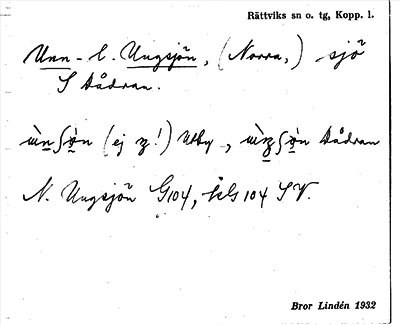 Rättviks sn o. tg, Kopp. l.
Unn- l. Ungsjön, (Norra,) sjö
S Dådran.
ùnʃö̀n (ej ŋ!) Utby, ùŋʃö̀n Dådran
N. Ungsjön G104, kls 104 SV.
Bror Lindén 1932